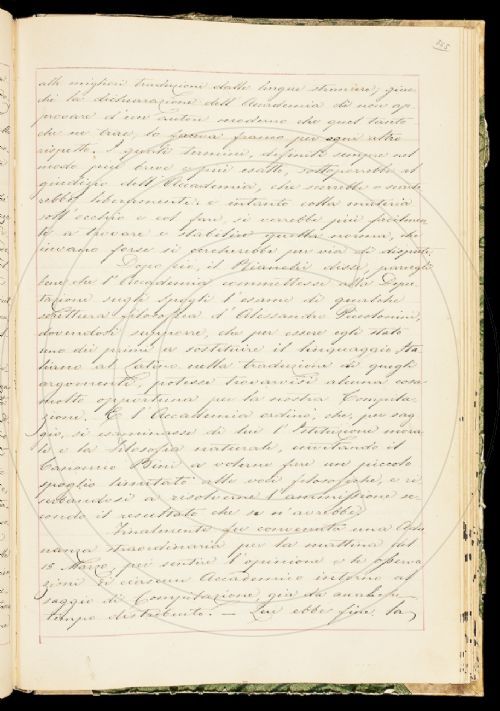 265
alle migliori traduzioni dalle lingue straniere, giac-
chè la dichiarazione dell'Accademia di non ap-
provare d'un autore moderno che quel tanto
che ne trae, lo faceva franco per ogni altro
rispetto. I quali termini, definiti sempre nel
modo più breve e più esatto, sottoporrebbe al
giudizio dell'Accademia, che accetterebbe o scarte-
rebbe liberamente: e intanto colla materia
sott'occhio e col fare, si verrebbe più facilmen-
te a trovare e stabilire quella norma, che
invano forse si cercherebbe per via di dispute.
Dopo ciò, il Bianchi disse, parergli
bene che l'Accademia commettesse alla Depu-
tazione sugli spogli l'esame di qualche
scrittura filosofica d'Alessandro Piccolomini,
dovendosi supporre, che per essere egli stato
uno dei primi a sostituire il linguaggio Ita-
liano al latino nella traduzione di quegli
argomenti, potesse trovarvisi alcuna cosa
molto opportuna per la nostra Compila-
zione. E l'Accademia ordinò, che, per sag-
gio, si esaminasse di lui l'Istituzione mora-
le e la Filosofia naturale, invitando il
Canonico Bini a volerne fare un piccolo
spoglio limitato alle voci filosofiche, e ri-
serbandosi a risolverne l'ammissione se-
condo il resultato che se n'avrebbe.
Finalmente fu convenuta una Adu-
nanza straordinaria per la mattina del
18 Marzo, per sentire l'opinione e le osserva-
zioni di ciascun Accademico intorno al
saggio di Compilazione, già da qualche
tempo distribuito. — Qui ebbe fine la